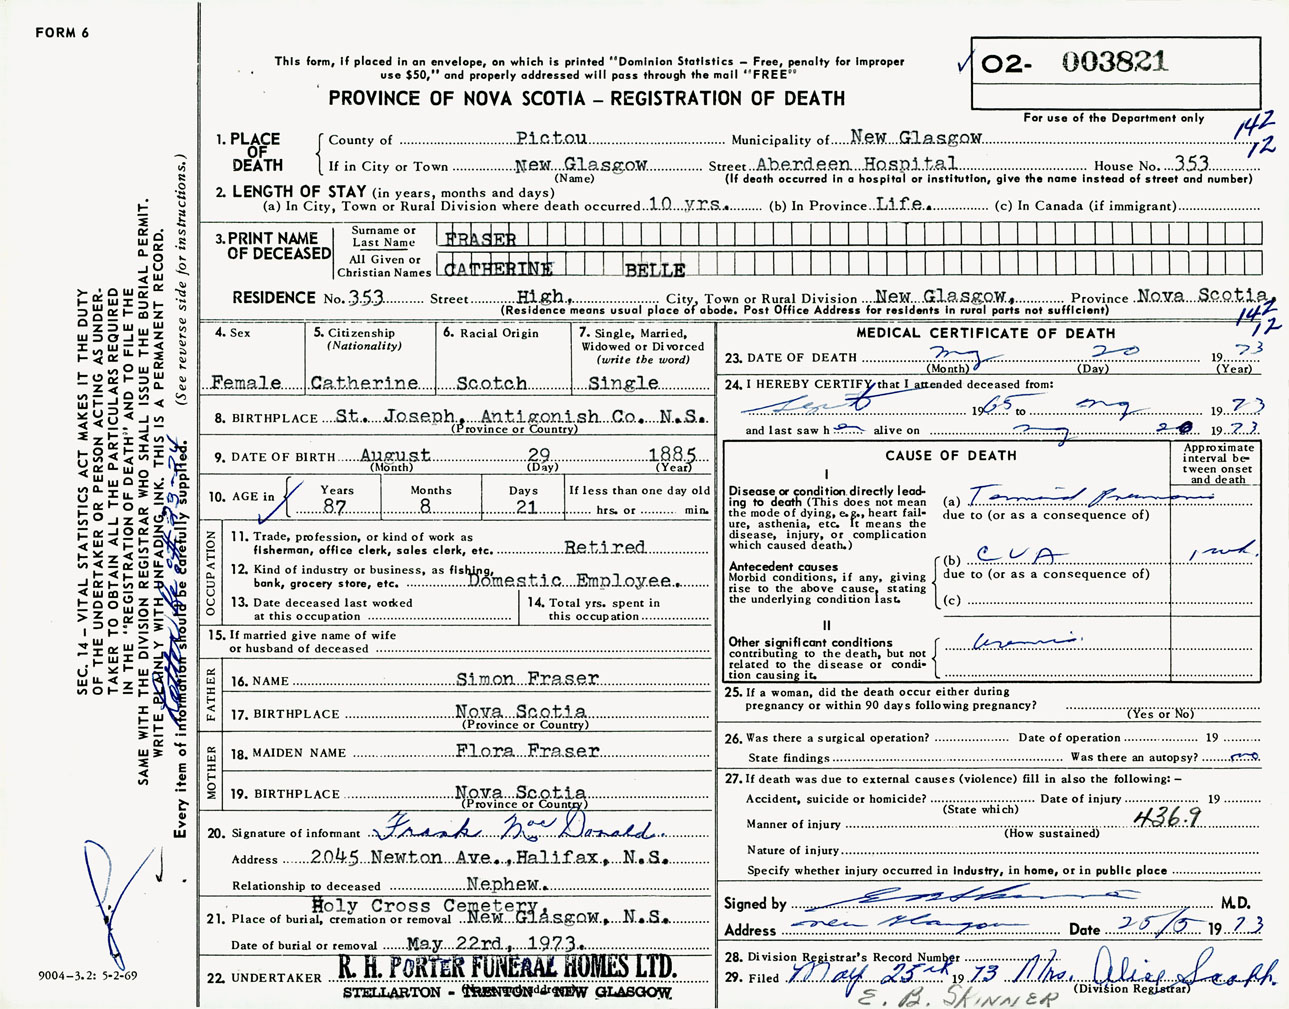 FORM 6
This form, if placed in an envelope, on which is printed "Dominion Statistics – Free, penalty for improper
use $50," and properly addressed will pass through the mail "FREE"
PROVINCE OF NOVA SCOTIA – REGISTRATION OF DEATH
02- 003821
For use of the Department only
142
12
1. PLACE OF DEATH
County of Pictou Municipality of New Glasgow
If in City or Town New Glasgow Street Aberdeen Hospital House No. 353
(Name) (If death occurred in a hospital or institution, give the name instead of street and number)
2. LENGTH OF STAY (in years, months and days)
(a) In City, Town or Rural Division where death occurred 10 yrs. (b) In Province Life. (c) In Canada (if immigrant)
3. PRINT NAME OF DECEASED
Surname or Last Name FRASER
All Given or Christian Names CATHERINE BELLE
RESIDENCE No. 353 Street High, City, Town or Rural Division New Glasgow, Province Nova Scotia,
(Residence means usual place of abode. Post Office Address for residents in rural parts not sufficient)
142
12
4. Sex
Female
5. Citizenship
(Nationality)
Catherine
6. Racial Origin
Scotch
7. Single, Married,
Widowed or Divorced
(write the word)
Single
8. BIRTHPLACE St. Joseph, Antigonish Co. N.S.
(Province or Country)
9. DATE OF BIRTH August 29 1885
(Month) (Day) (Year)
10. AGE in
Years Months Days If less than one day old
87 8 21 hrs. or min.
OCCUPATION
11. Trade, profession, or kind of work as
fisherman, office clerk, sales clerk, etc. Retired
12. Kind of industry or business, as fishing,
bank, grocery store, etc. Domestic Employee.
13. Date deceased last worked
at this occupation
14. Total yrs. spent in
this occupation
15. If married give name of wife
or husband of deceased
FATHER
16. NAME Simon Fraser
17. BIRTHPLACE Nova Scotia
(Province or Country)
MOTHER
18. MAIDEN NAME Flora Fraser
19. BIRTHPLACE Nova Scotia
(Province or Country)
20. Signature of informant Frank MacDonald.
Address 2045 Newton Ave., Halifax, N.S.
Relationship to deceased Nephew.
Holy Cross Cemetery,
21. Place of burial, cremation or removal New Glasgow, N.S.
Date of burial or removal May 22rd, 1973.
22. UNDERTAKER R. H. PORTER FUNERAL HOMES LTD.
STELLARTON - TRENTON - NEW GLASGOW
MEDICAL CERTIFICATE OF DEATH
23. DATE OF DEATH May 20 1973
(Month) (Day) (Year)
24. I HEREBY CERTIFY that I attended deceased from:
Sept 1965 to May 1973
and last saw her alive on May 20 1973
CAUSE OF DEATH
Approximate
interval be-
tween onset
and death
I
Disease or condition directly lead-
ing to death (This does not mean
the mode of dying, e.g., heart fail-
ure, asthenia, etc. It means the
disease, injury, or complication
which caused death.)
(a) Terminal Pneumonia
due to (or as a consequence of)
(b) CVA 1 wk.
due to (or as a consequence of)
(c)
Antecedent causes
Morbid conditions, if any, giving
rise to the above cause, stating
the underlying condition last.
II
Other significant conditions
contributing to the death, but not
related to the disease or condi-
tion causing it.
Uremia.
25. If a woman, did the death occur either during
pregnancy or within 90 days following pregnancy?
(Yes or No)
26. Was there a surgical operation? Date of operation 19
State findings Was there an autopsy? no
27. If death was due to external causes (violence) fill in also the following: –
Accident, suicide or homicide? Date of injury 19
(State which)
Manner of injury 436.9
(How sustained)
Nature of injury
Specify whether injury occurred in industry, in home, or in public place
Signed by M.D.
Address New Glasgow Date 25/5 1973
28. Division Registrar's Record Number
29. Filed May 25th 1973 Mrs. Alice
(Division Registrar)
E. B. SKINNER
SEC. 14 – VITAL STATISTICS ACT MAKES IT THE DUTY
OF THE UNDERTAKER OR PERSON ACTING AS UNDER-
TAKER TO OBTAIN ALL THE PARTICULARS REQUIRED
IN THE "REGISTRATION OF DEATH" AND TO FILE THE
SAME WITH THE DIVISION REGISTRAR WHO SHALL ISSUE THE BURIAL PERMIT.
WRITE PLAINLY WITH UNFADING INK. THIS IS A PERMANENT RECORD.
Every item of information should be carefully supplied. (See reverse side for instructions.)
9004-3.2: 5-2-69